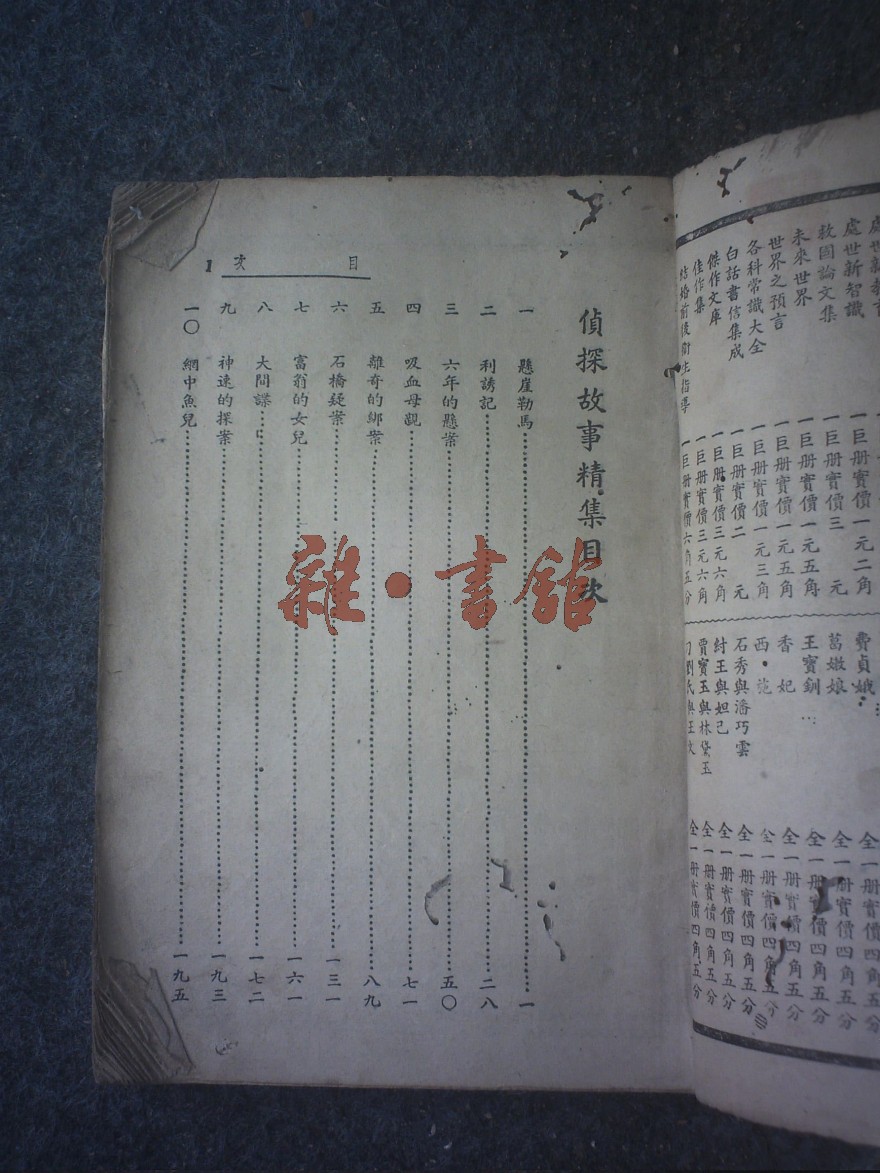 處世新智識 一巨册實價一元二角
救國論文集 一巨册實價三元
未來世界 一巨册實價一元五角
世界之預言 一巨册實價一元五角
各科常識大全 一巨册實價一元三角
白話書信集成 一巨册實價二元
傑作文庫 一巨册實價三元六角
佳作集 一巨册實價三元六角
結婚前後衛生指導 一巨册實價六角五分
費貞娥 全一册實價四角五分
葛嫩娘 全一册實價四角五分
王寶釧 全一册實價四角五分
香妃 全一册實價四角五分
西施 全一册實價四角五分
石秀與潘巧雲 全一册實價四角五分
紂王與妲己 全一册實價四角五分
賈寶玉與林黛玉 全一册實價四角五分
刁劉氏與王文 全一册實價四角五分
目次 1
偵探故事精集目次
一 懸崖勒馬 一
二 利誘記 二八
三 六年的懸案 五〇
四 吸血母親 七一
五 離奇的綁案 八九
六 石橋疑案 一三一
七 富翁的女兒 一六一
八 大間諜 一七二
九 神速的探案 一九三
一〇 網中魚兒 一九五
雜·書館